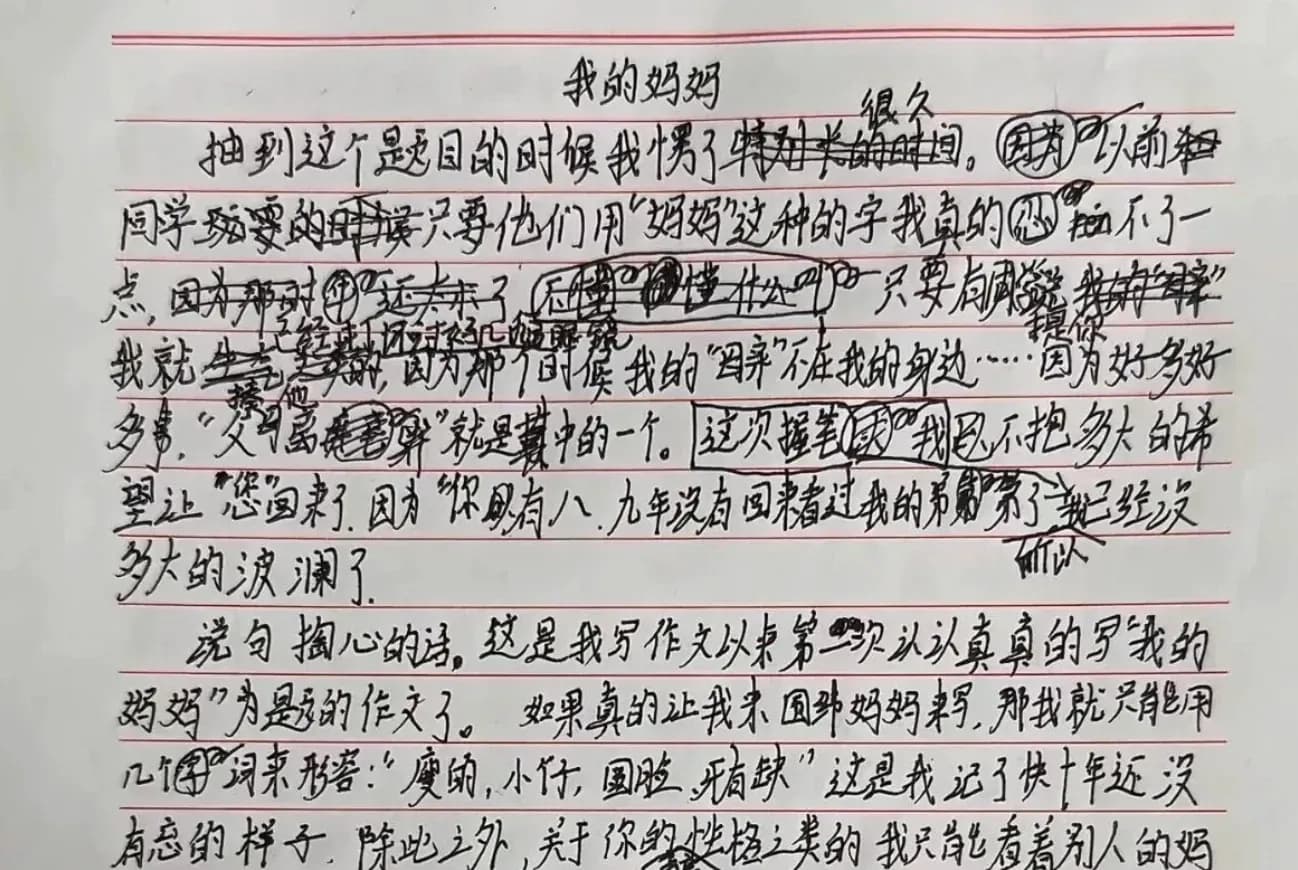 我的妈妈
很久
抽到这个题目的时候我愣了特别长的时间。因为以前
同学只要他们用“妈妈”这种的字我真的忍不了一
点,因为那时还太小了 不懂 懂什么 只要有
提你
我就 的,因为那个时候我的“母亲”不在我的身边……因为好多好
多事,“父母离 异”就是其中的一个。这次握笔 我已不抱多大的希
望让“您”回来了,因为“你”已有八、九年没有回来看过我的弟弟了 我已经没
所以
多大的波澜了,
说句掏心的话。这是我写作文以来第一次认认真真的写“我的
妈妈”为题的作文了。如果真的让我来围绕妈妈来写,那我就只能用
几个字词来形容:“瘦的,小仔,圆脸,牙有缺”这是我记了快十年还没
有忘的样子,除此之外,关于你的性格之类的我只能看着别人的妈